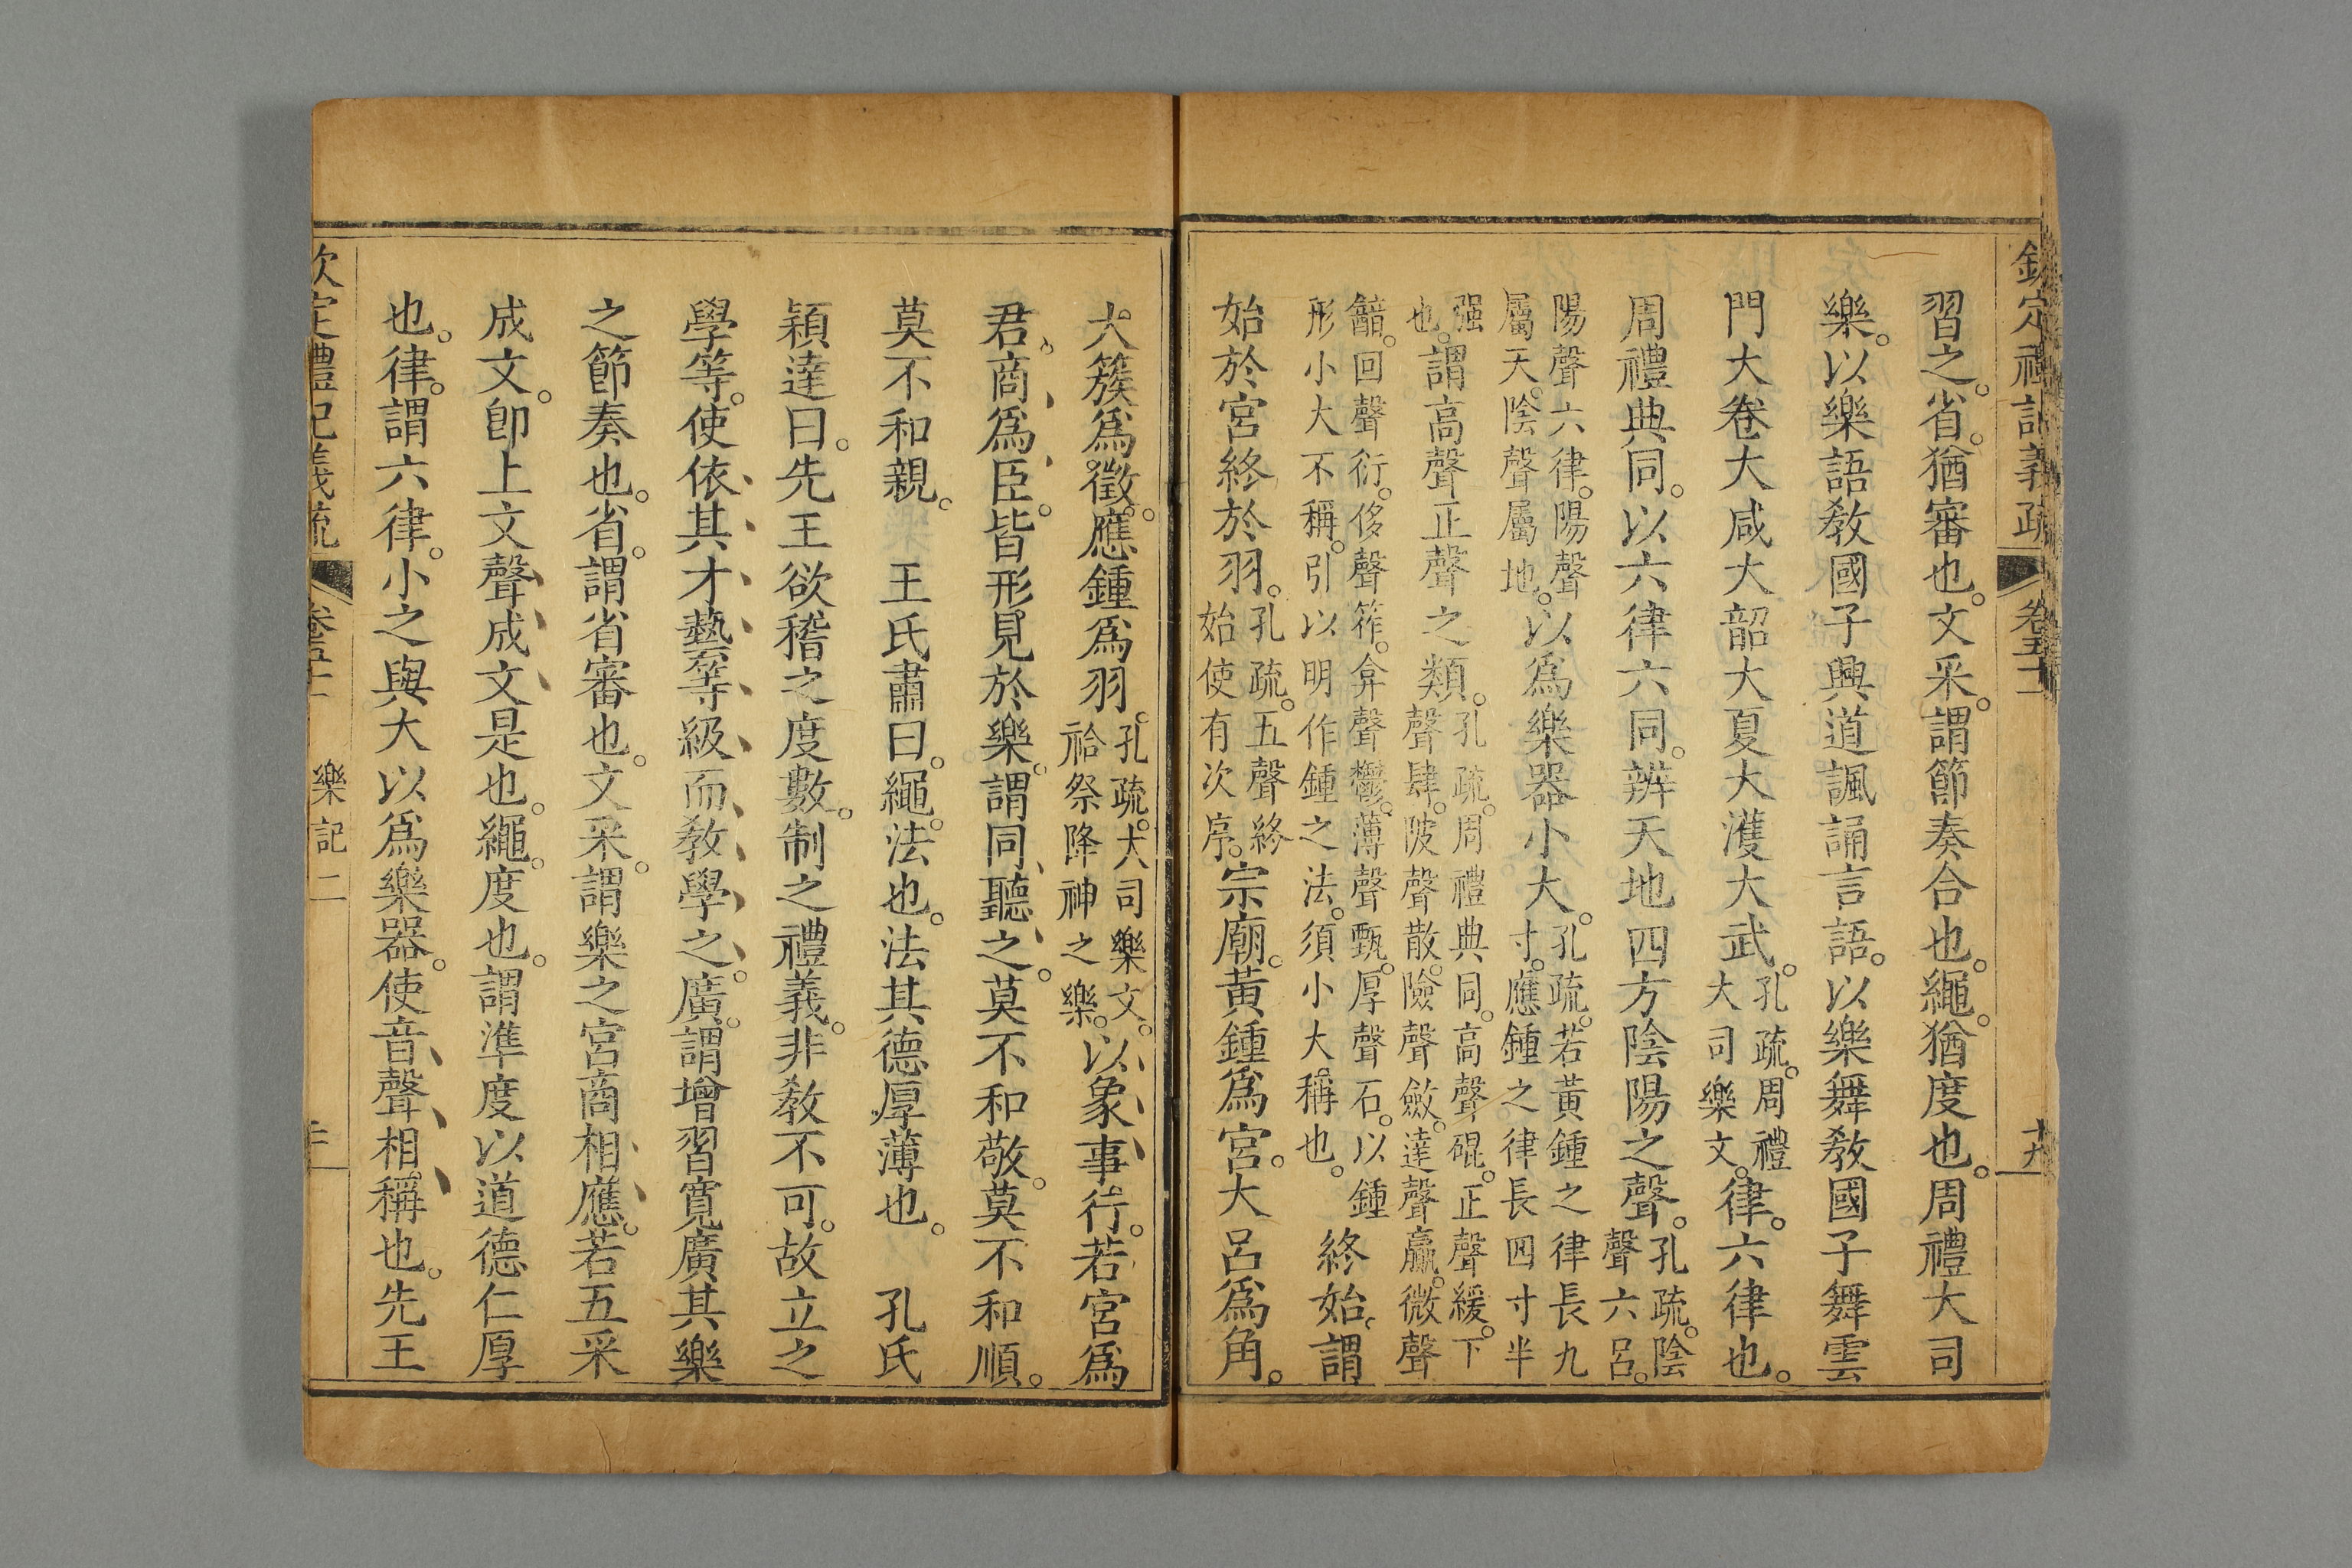 欽定禮記義疏 卷五十一 十九
習之。省。猶審也。文采。謂節奏合也。繩。猶度也。周禮大司
樂。以樂語敎國子興道諷誦言語。以樂舞敎國子舞雲
門大卷大咸大韶大夏大濩大武。孔疏。周禮大司樂文。律。六律也。
周禮典同。以六律六同。辨天地四方陰陽之聲。孔疏。陰聲六呂。
陽聲六律。陽聲屬天。陰聲屬地。以爲樂器小大。孔疏。若黃鍾之律長九寸。應鍾之律長四寸半
强也。謂高聲正聲之類。孔疏。周禮典同。高聲䃂。正聲緩。下聲肆。陂聲散。險聲斂。達聲贏。微聲
韽。回聲衍。侈聲筰。弇聲鬱。薄聲甄。厚聲石。以鍾形小大不稱。引以明作鍾之法。須小大稱也。終始。謂
始於宮終於羽。孔疏。五聲終始使有次序。宗廟。黃鍾爲宮。大呂爲角。
大簇爲徵。應鍾爲羽。孔疏。大司樂文。祫祭降神之樂。以象事行。若宮爲
君。商爲臣。皆形見於樂。謂同聽之。莫不和敬。莫不和順。
莫不和親。 王氏肅曰。繩。法也。法其德厚薄也。 孔氏
穎達曰。先王欲稽之度數。制之禮義。非敎不可。故立之
學等。使依其才藝等級而敎學之。廣。謂增習寬廣其樂
之節奏也。省。謂省審也。文采。謂樂之宮商相應。若五采
成文。卽上文聲成文是也。繩。度也。謂準度以道德仁厚
也。律。謂六律。小之與大以爲樂器。使音聲相稱也。先王
欽定禮記義疏 卷五十一 樂記二